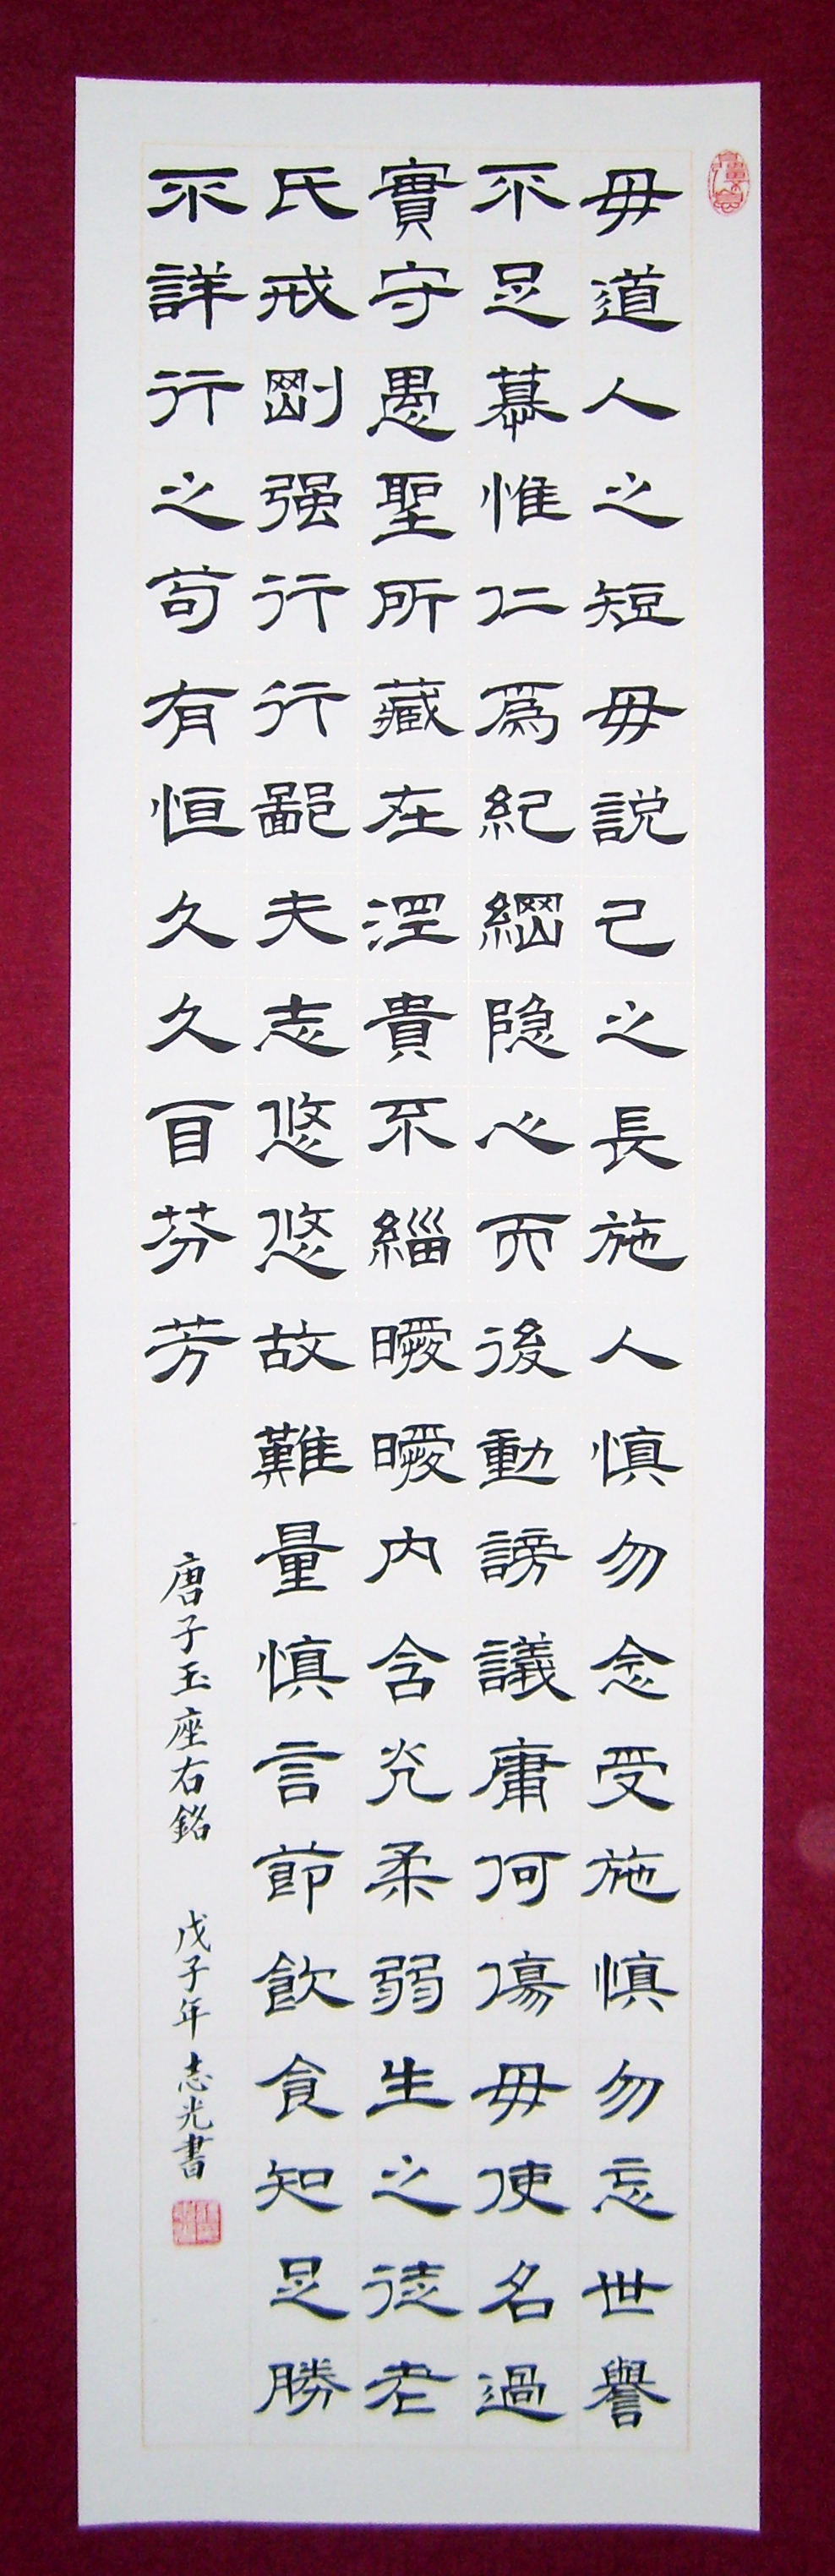 毋道人之短毋説己之長施人慎勿念受施慎勿忘世譽
不足慕惟仁爲紀綱隐心而後動謗議庸何傷毋使名過
實守愚聖所藏在涅貴不緇曖曖内含光柔弱生之徒老
氏戒剛强行行鄙夫志悠悠故難量慎言節飲食知足勝
不詳行之苟有恒久久自芬芳
唐子玉座右銘 戊子年志光書